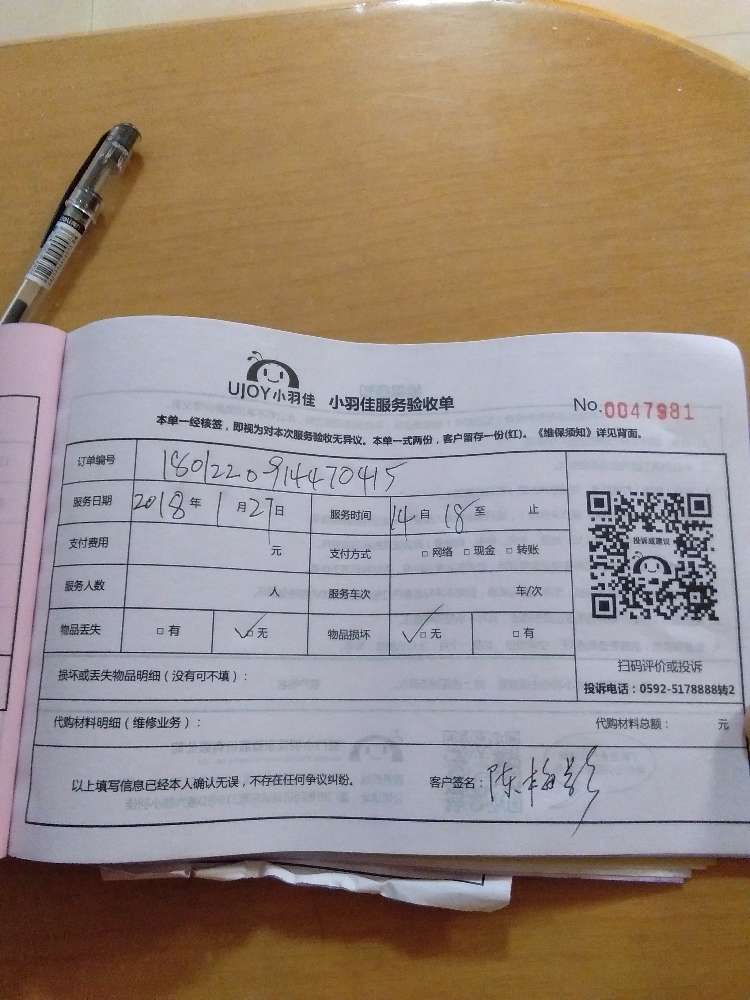 UJOY小羽佳 小羽佳服务验收单 No.0047981
本单一经核签，即视为对本次服务验收无异议。本单一式两份，客户留存一份(红)。《维保须知》详见背面。
订单编号 1801220914470415
服务日期 2018年1月27日 服务时间 14自18至 止
支付费用 元 支付方式 □网络 □现金 □转账
投诉或建议
服务人数 人 服务车次 车/次
物品丢失 □有 ✓□无 物品损坏 ✓□无 □有
扫码评价或投诉
损坏或丢失物品明细（没有可不填）：
投诉电话：0592-5178888转2
代购材料明细（维修业务）： 代购材料总额： 元
以上填写信息已经本人确认无误，不存在任何争议纠纷。 客户签名：陈梅